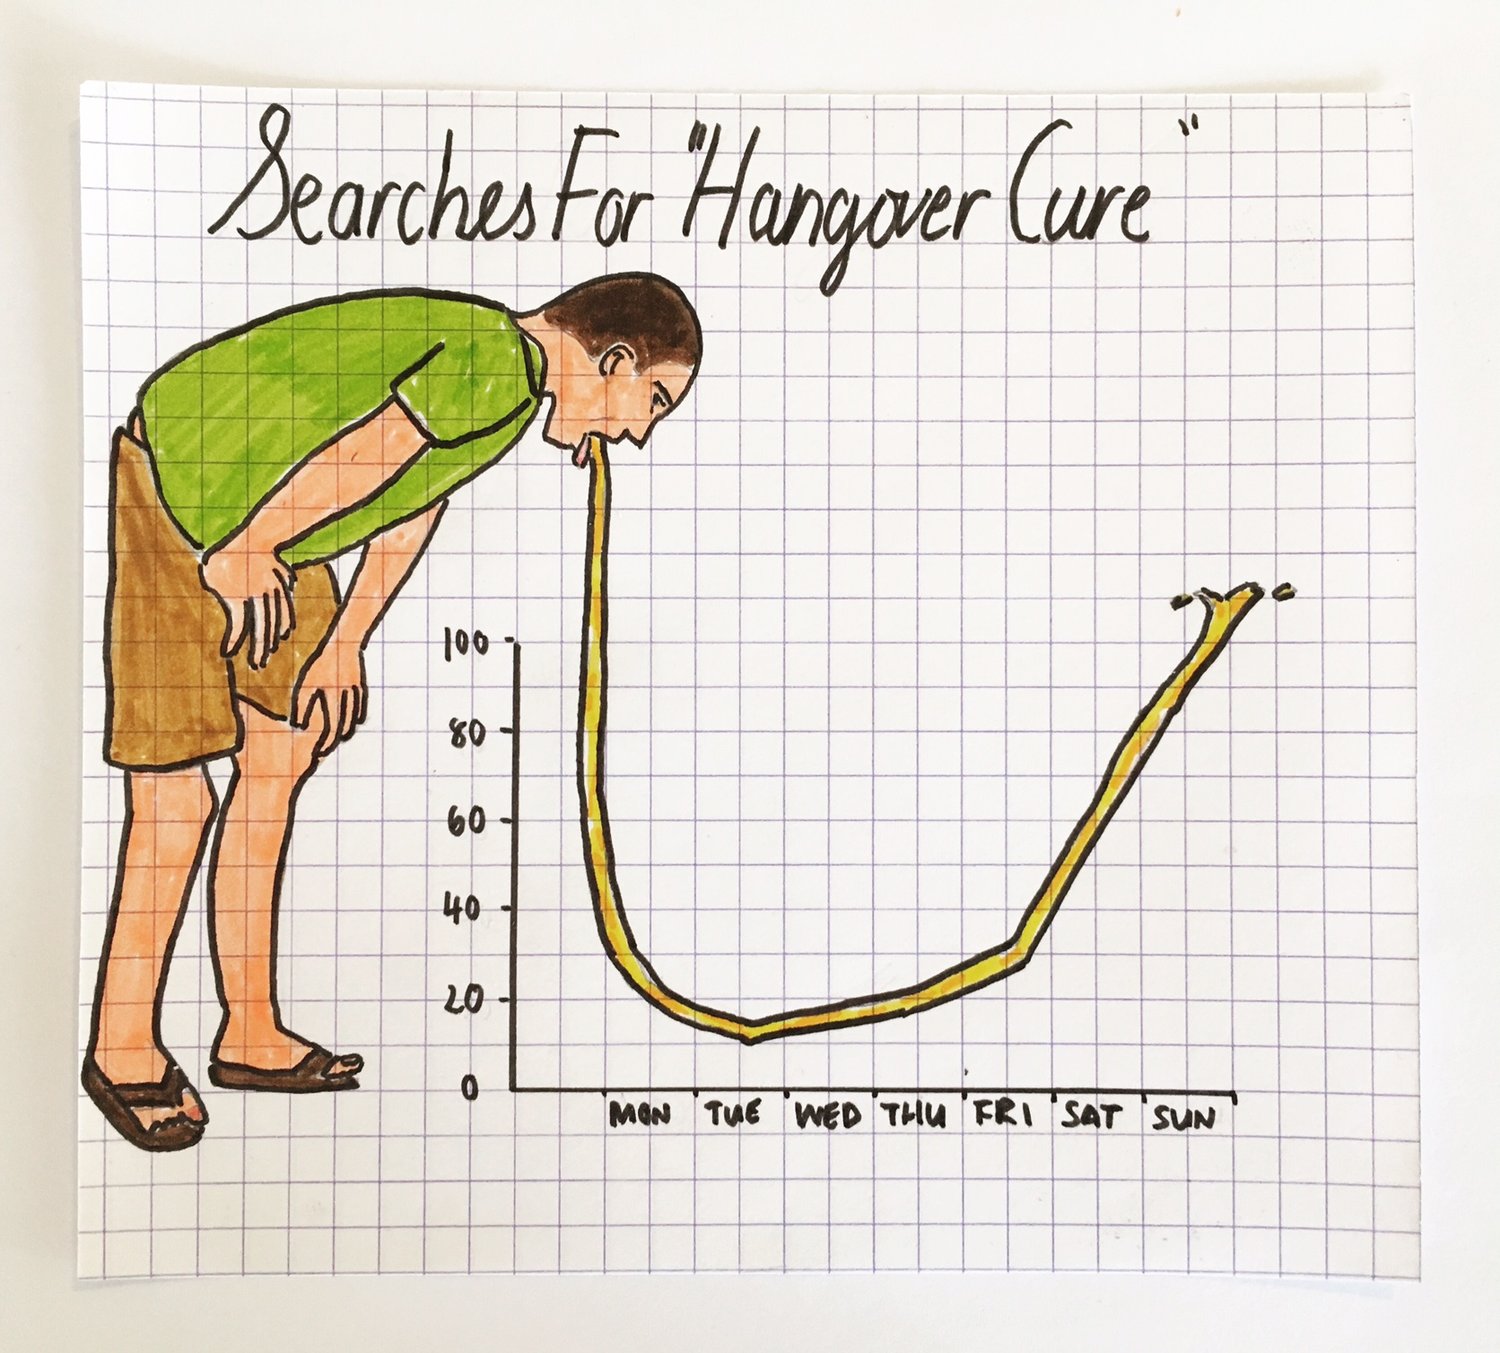 Searches For "Hangover Cure"
100
80
60
40
20
0
MON TUE WED THU FRI SAT SUN